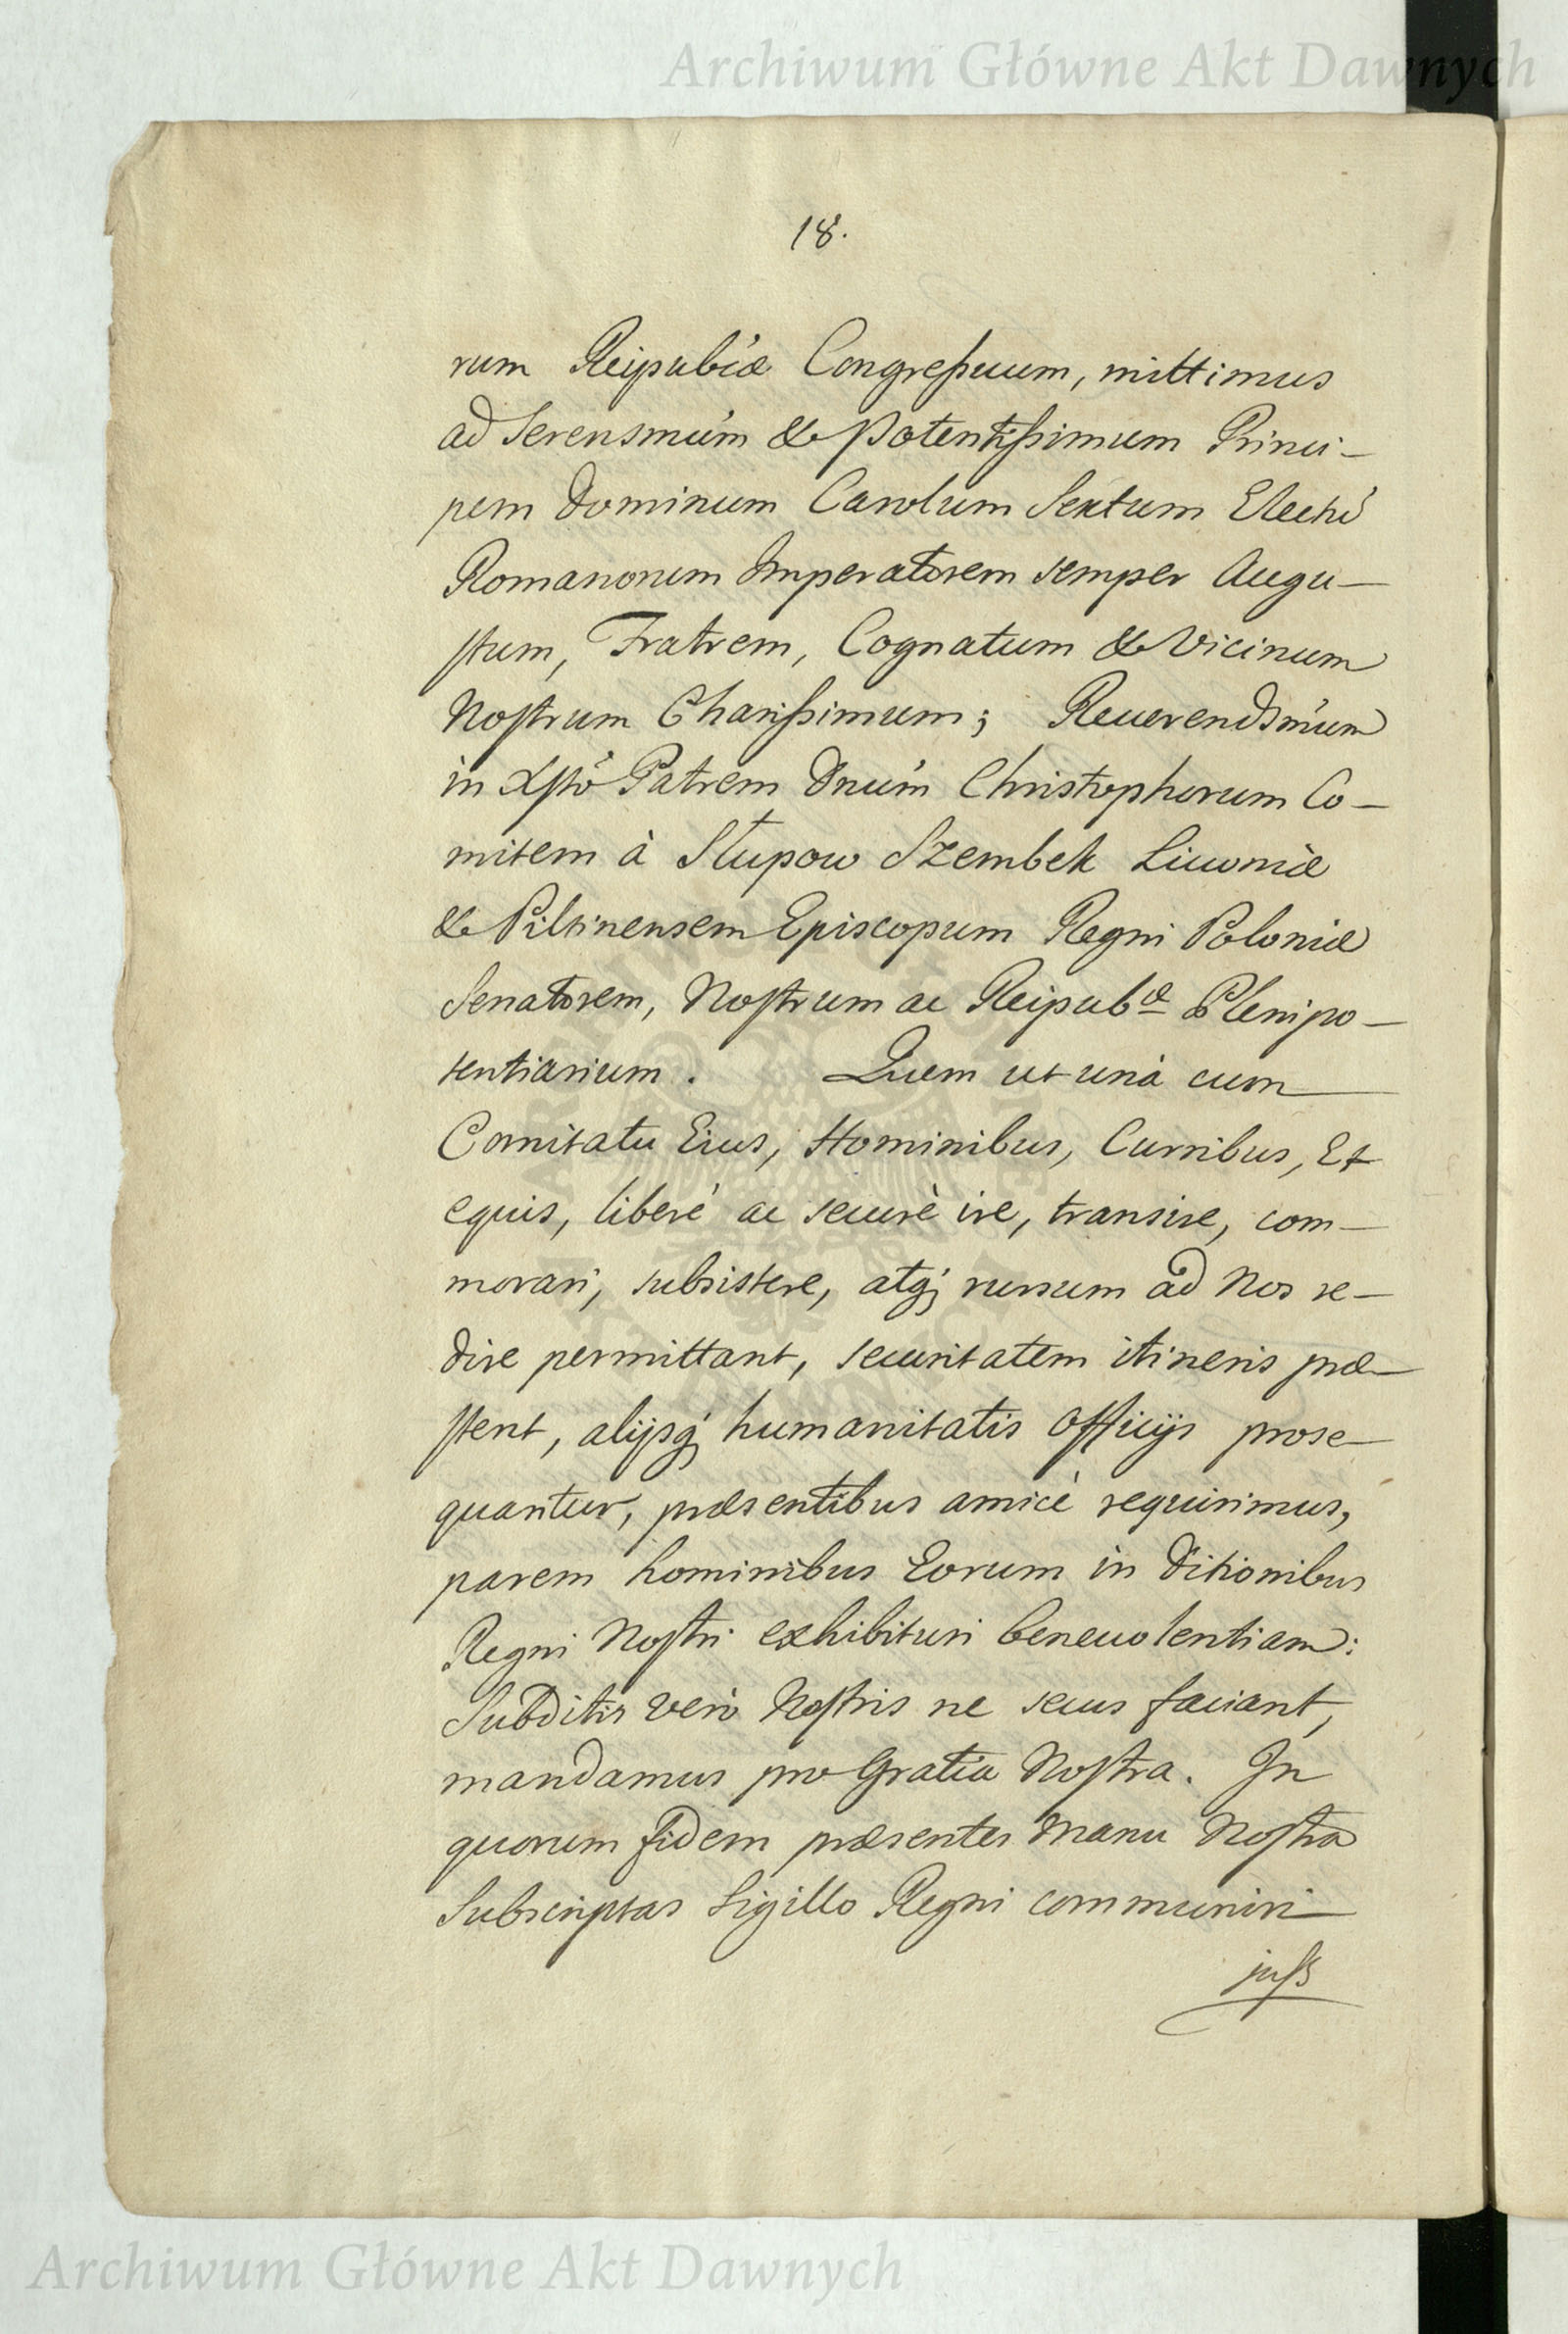 Archiwum Główne Akt Dawnych
18.
rum Reipub'cæ Congreſsuum, mittimus
ad Serensmu'm & Potentiſsimum Princi-
pem Dominum Carolum Sextum Electu'
Romanorum Imperatorem semper Augu-
ſtum, Fratrem, Cognatum & Vicinum
Noſtrum Chariſsimum; Reuerendsmu'm
in Xſto' Patrem Dnu'm Christophorum Co-
mitem à Słupow Szembek Liuoniæ
& Piltinensem Episcopum Regni Poloniæ
Senatorem, Noſtrum ac Reipubcæ Plenipo-
tentiarium. Quem ut unà cum
Comitatu Eius, Hominibus, Curribus, Et
equis, liberè ac securè ire, transire, com-
morari, subsistere, atqj rursum ad Nos re-
dire permittant, securitatem itineris præ-
ſtent, alijsqj humanitatis Officijs prose-
quantur, præsentibus amicè requirimus,
parem hominibus Eorum in Ditionibus
Regni Noſtri exhibituri beneuolentiam:
Subditis verò Noſtris ne secus faciant,
mandamus pro Gratia Noſtra. In
quorum fidem præsentes Manu Noſtra
Subscriptas Sigillo Regni communiri
juſs
Archiwum Główne Akt Dawnych